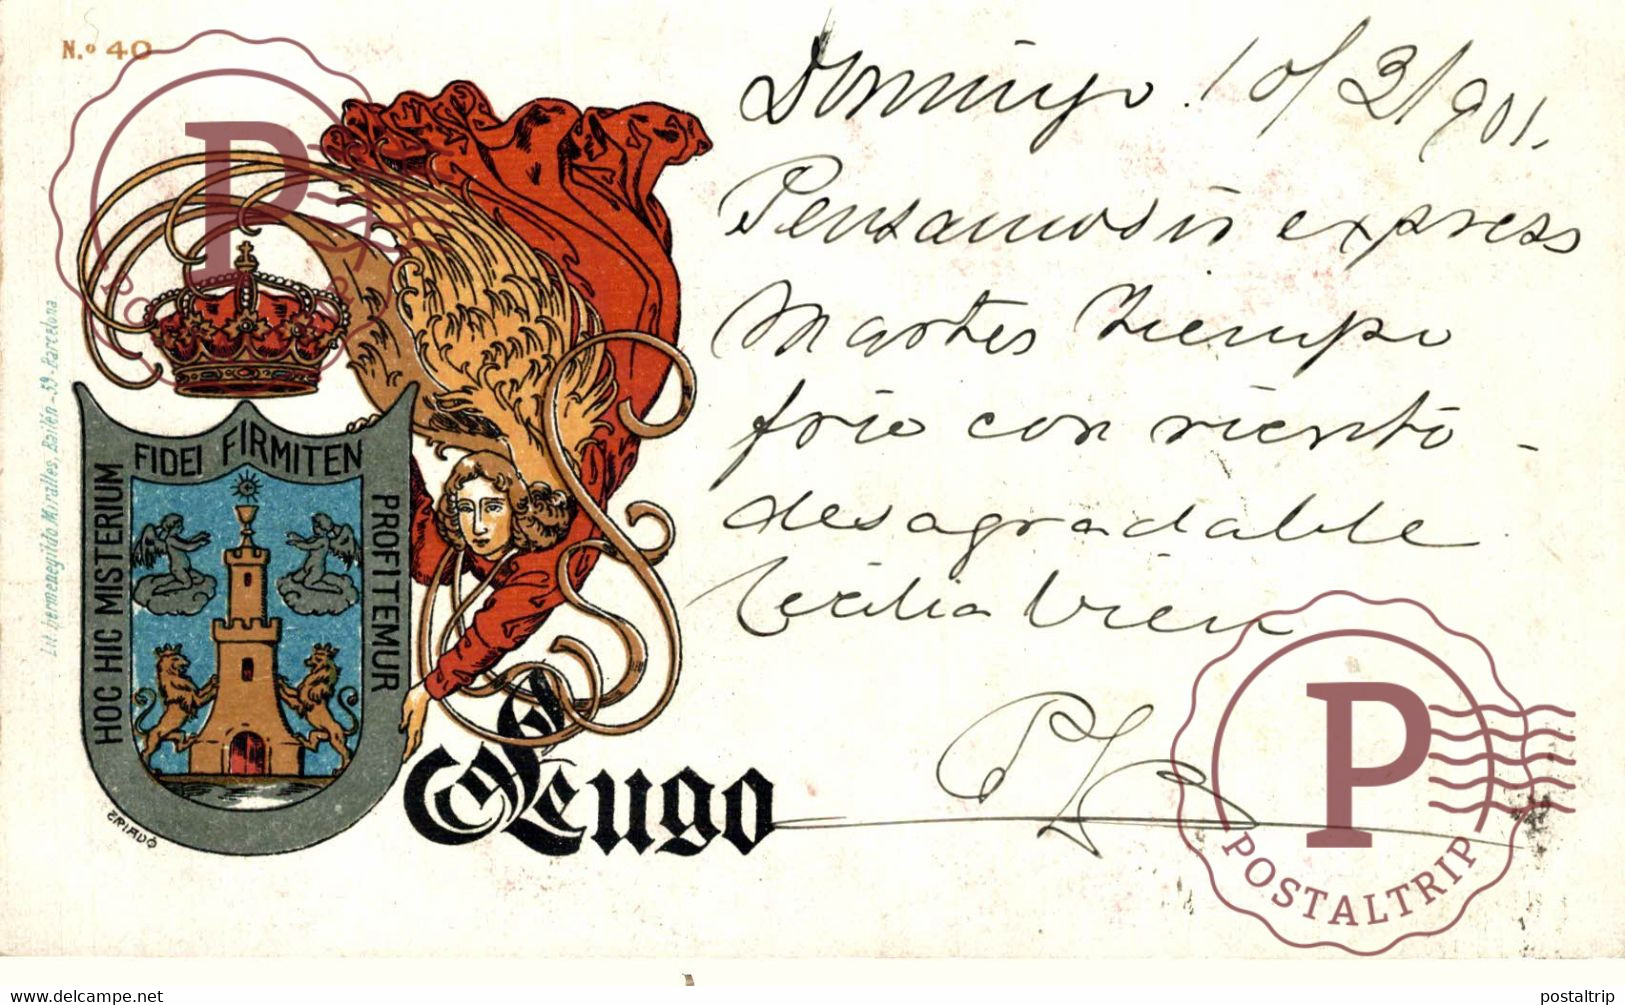 N.º 40
Domingo 10/3/901.
Pensamos ir express
Martes tiempo
frio con viento
desagradable
Cecilia bien
FIDEI FIRMITEN
HOC HIC MISTERIUM
PROFITEMUR
CRIADÓ
Lit. hermenegildo Miralles, Bailén-59-Barcelona
Lugo
P
POSTALTRIP
P
POSTALTRIP
www.delcampe.net
postaltrip